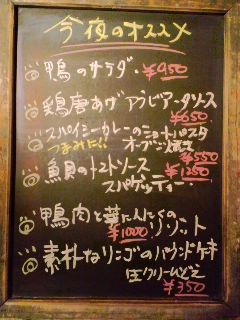 今夜のオススメ
鴨のサラダ・¥950
鶏唐あげ アラビアータソース
¥650
スパイシーカレーのショートパスタ
つまみに!! オーブン焼き
¥550
魚貝のトマトソース ¥1250
スパゲッティー
鴨肉と葉にんにくの
¥1000 リゾット
素朴なリンゴのパウンドケーキ
生クリーム
¥350